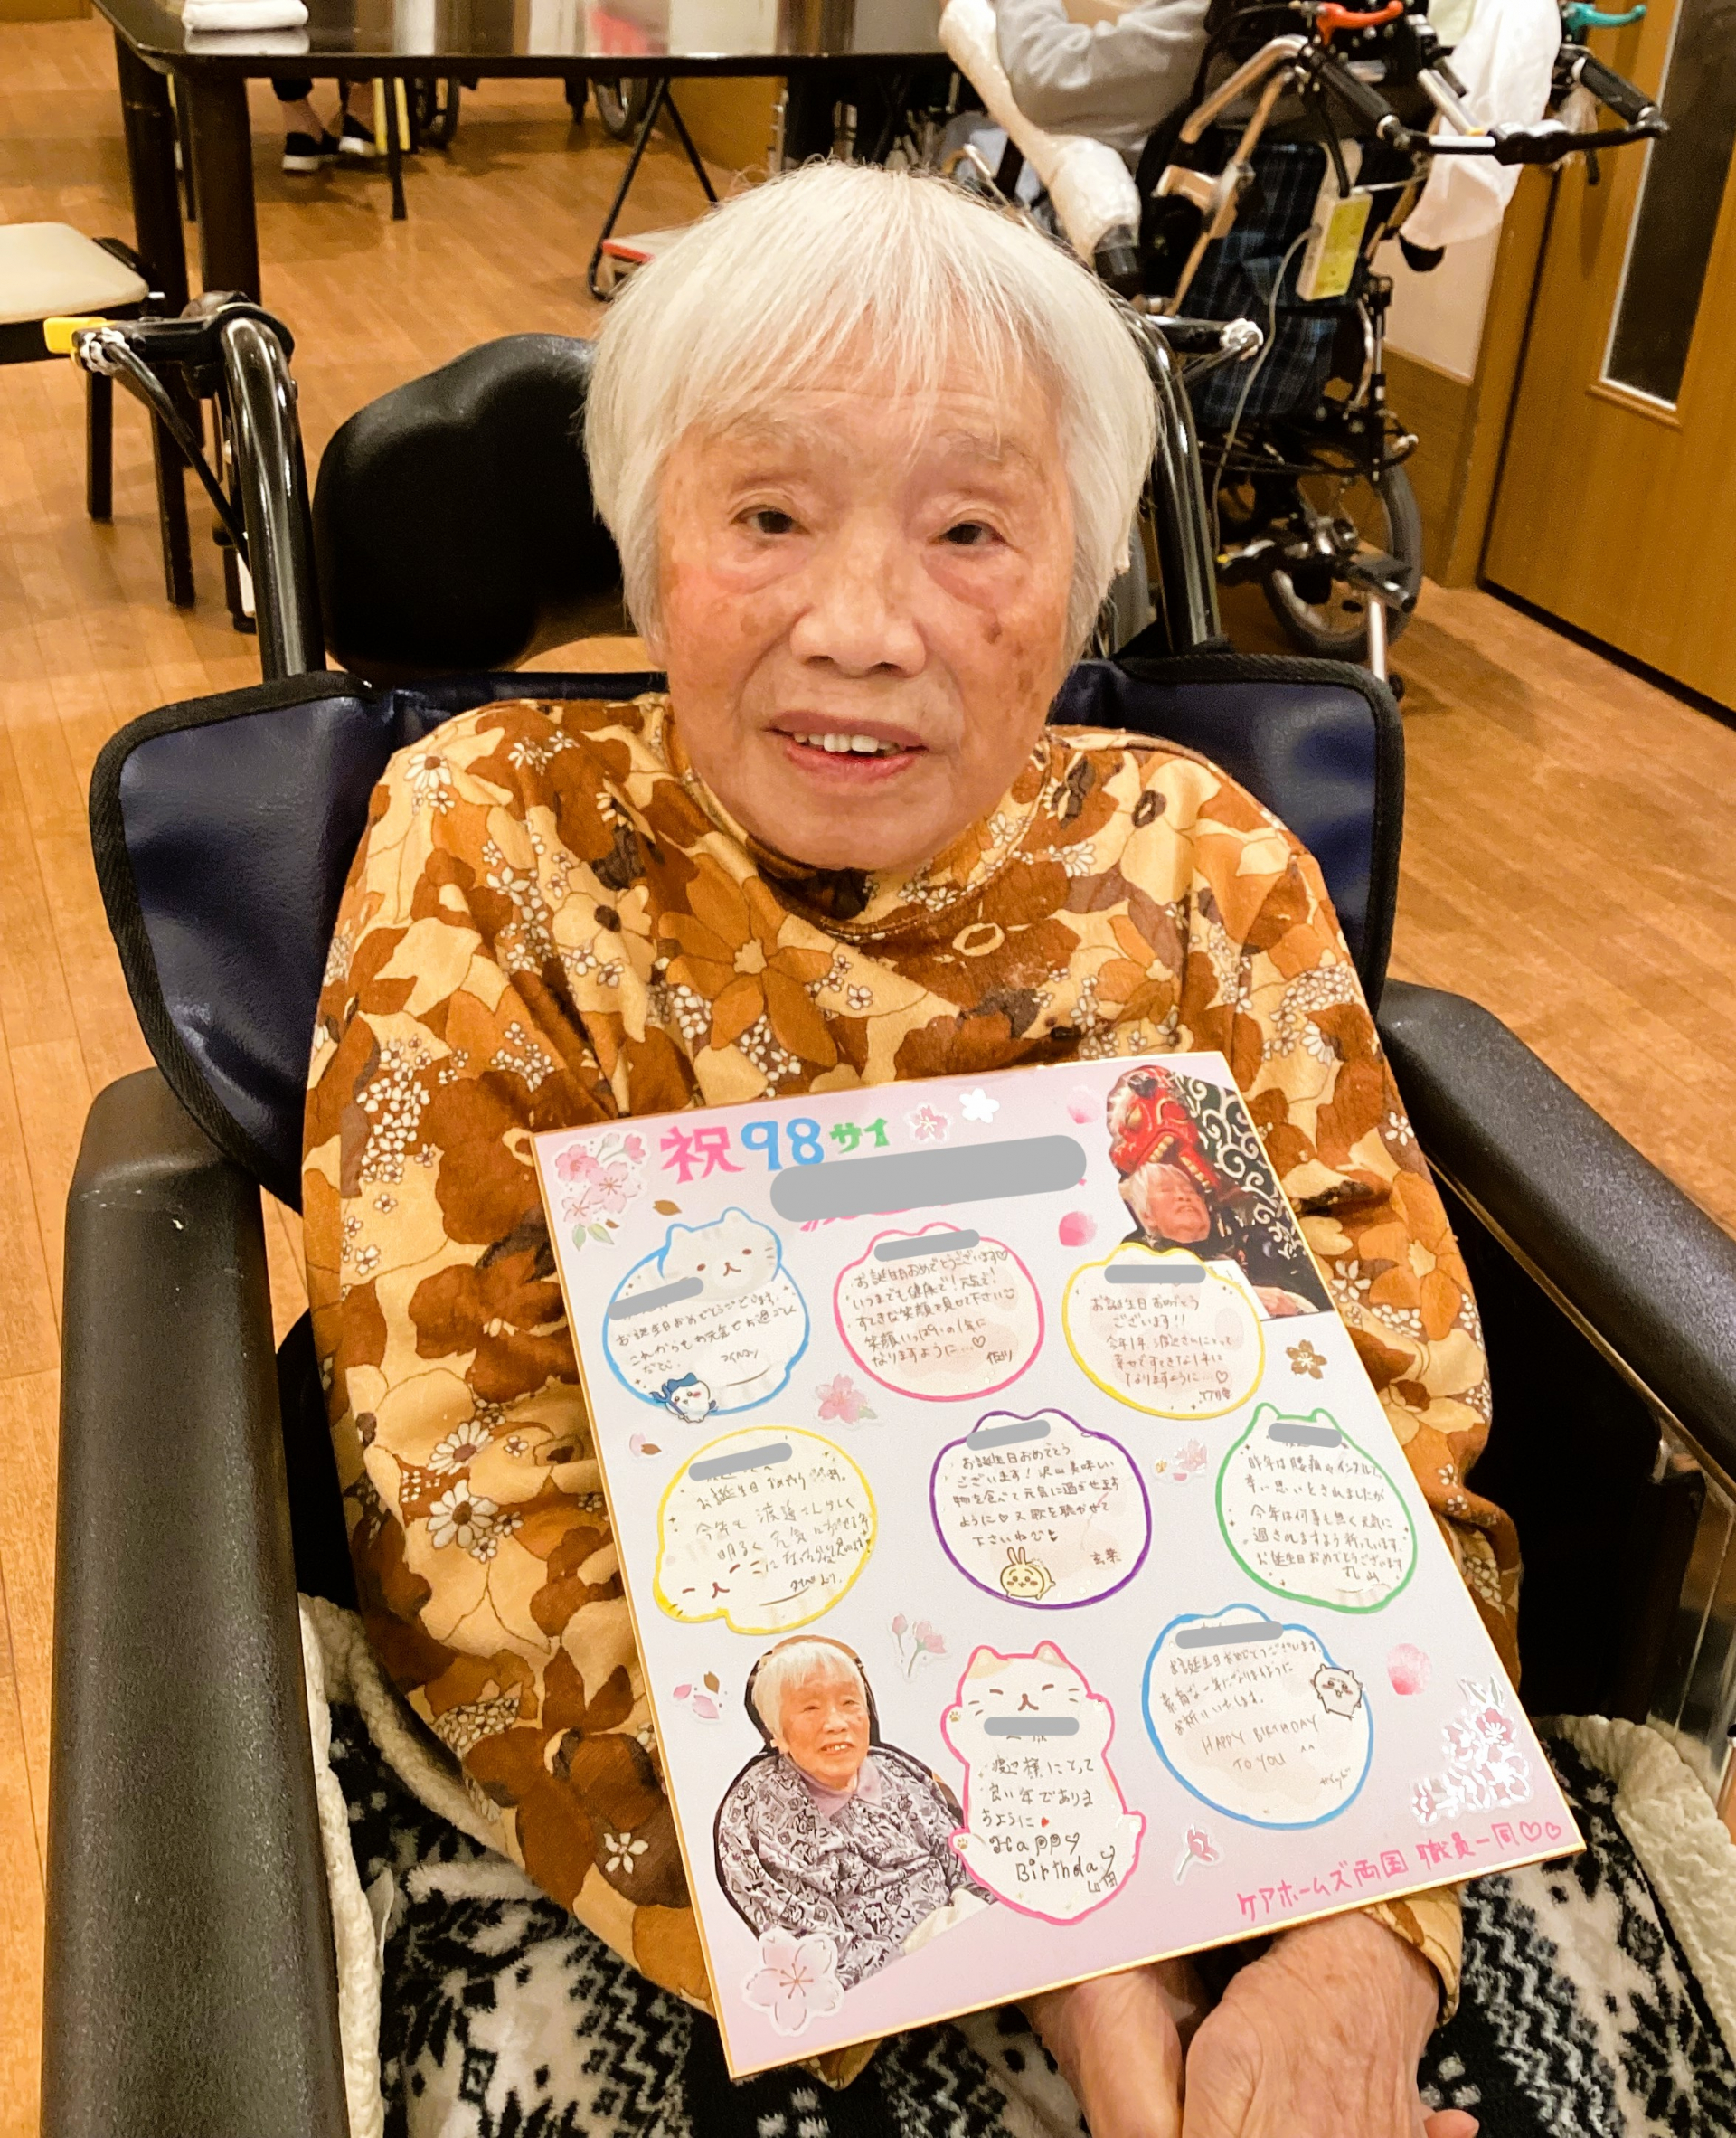 祝98サイ
お誕生日おめでとうございます。
これからもお元気でお過ごしく
ださい。
お誕生日おめでとうございます♡
いつまでも健康で!元気で!
すてきな笑顔を見せて下さい♡
笑顔いっぱいの1年に
なりますように…♡
お誕生日おめでとう
ございます!!
今年1年渡辺さんにとって
幸せですてきな1年に
なりますように…♡
お誕生日おめでとう
今年も渡邉さんらしく
明るく元気に
お誕生日おめでとう
ございます!沢山美味しい
物を食べて元気に過ごせます
ように♡又歌を聴かせて
下さいね
昨年は腰痛やインフルで、
辛い思いをされましたが
今年は何事も無く元気に
過ごされますよう祈っています。
お誕生日おめでとうございます
丸山
渡辺様にとって
良い年でありま
すように
Happy
Birthday
お誕生日おめでとうございます。
素敵な一年になりますように
お祈りいたします。
HAPPY BIRTHDAY
TO YOU ^^
ケアホームズ両国 職員一同♡♡